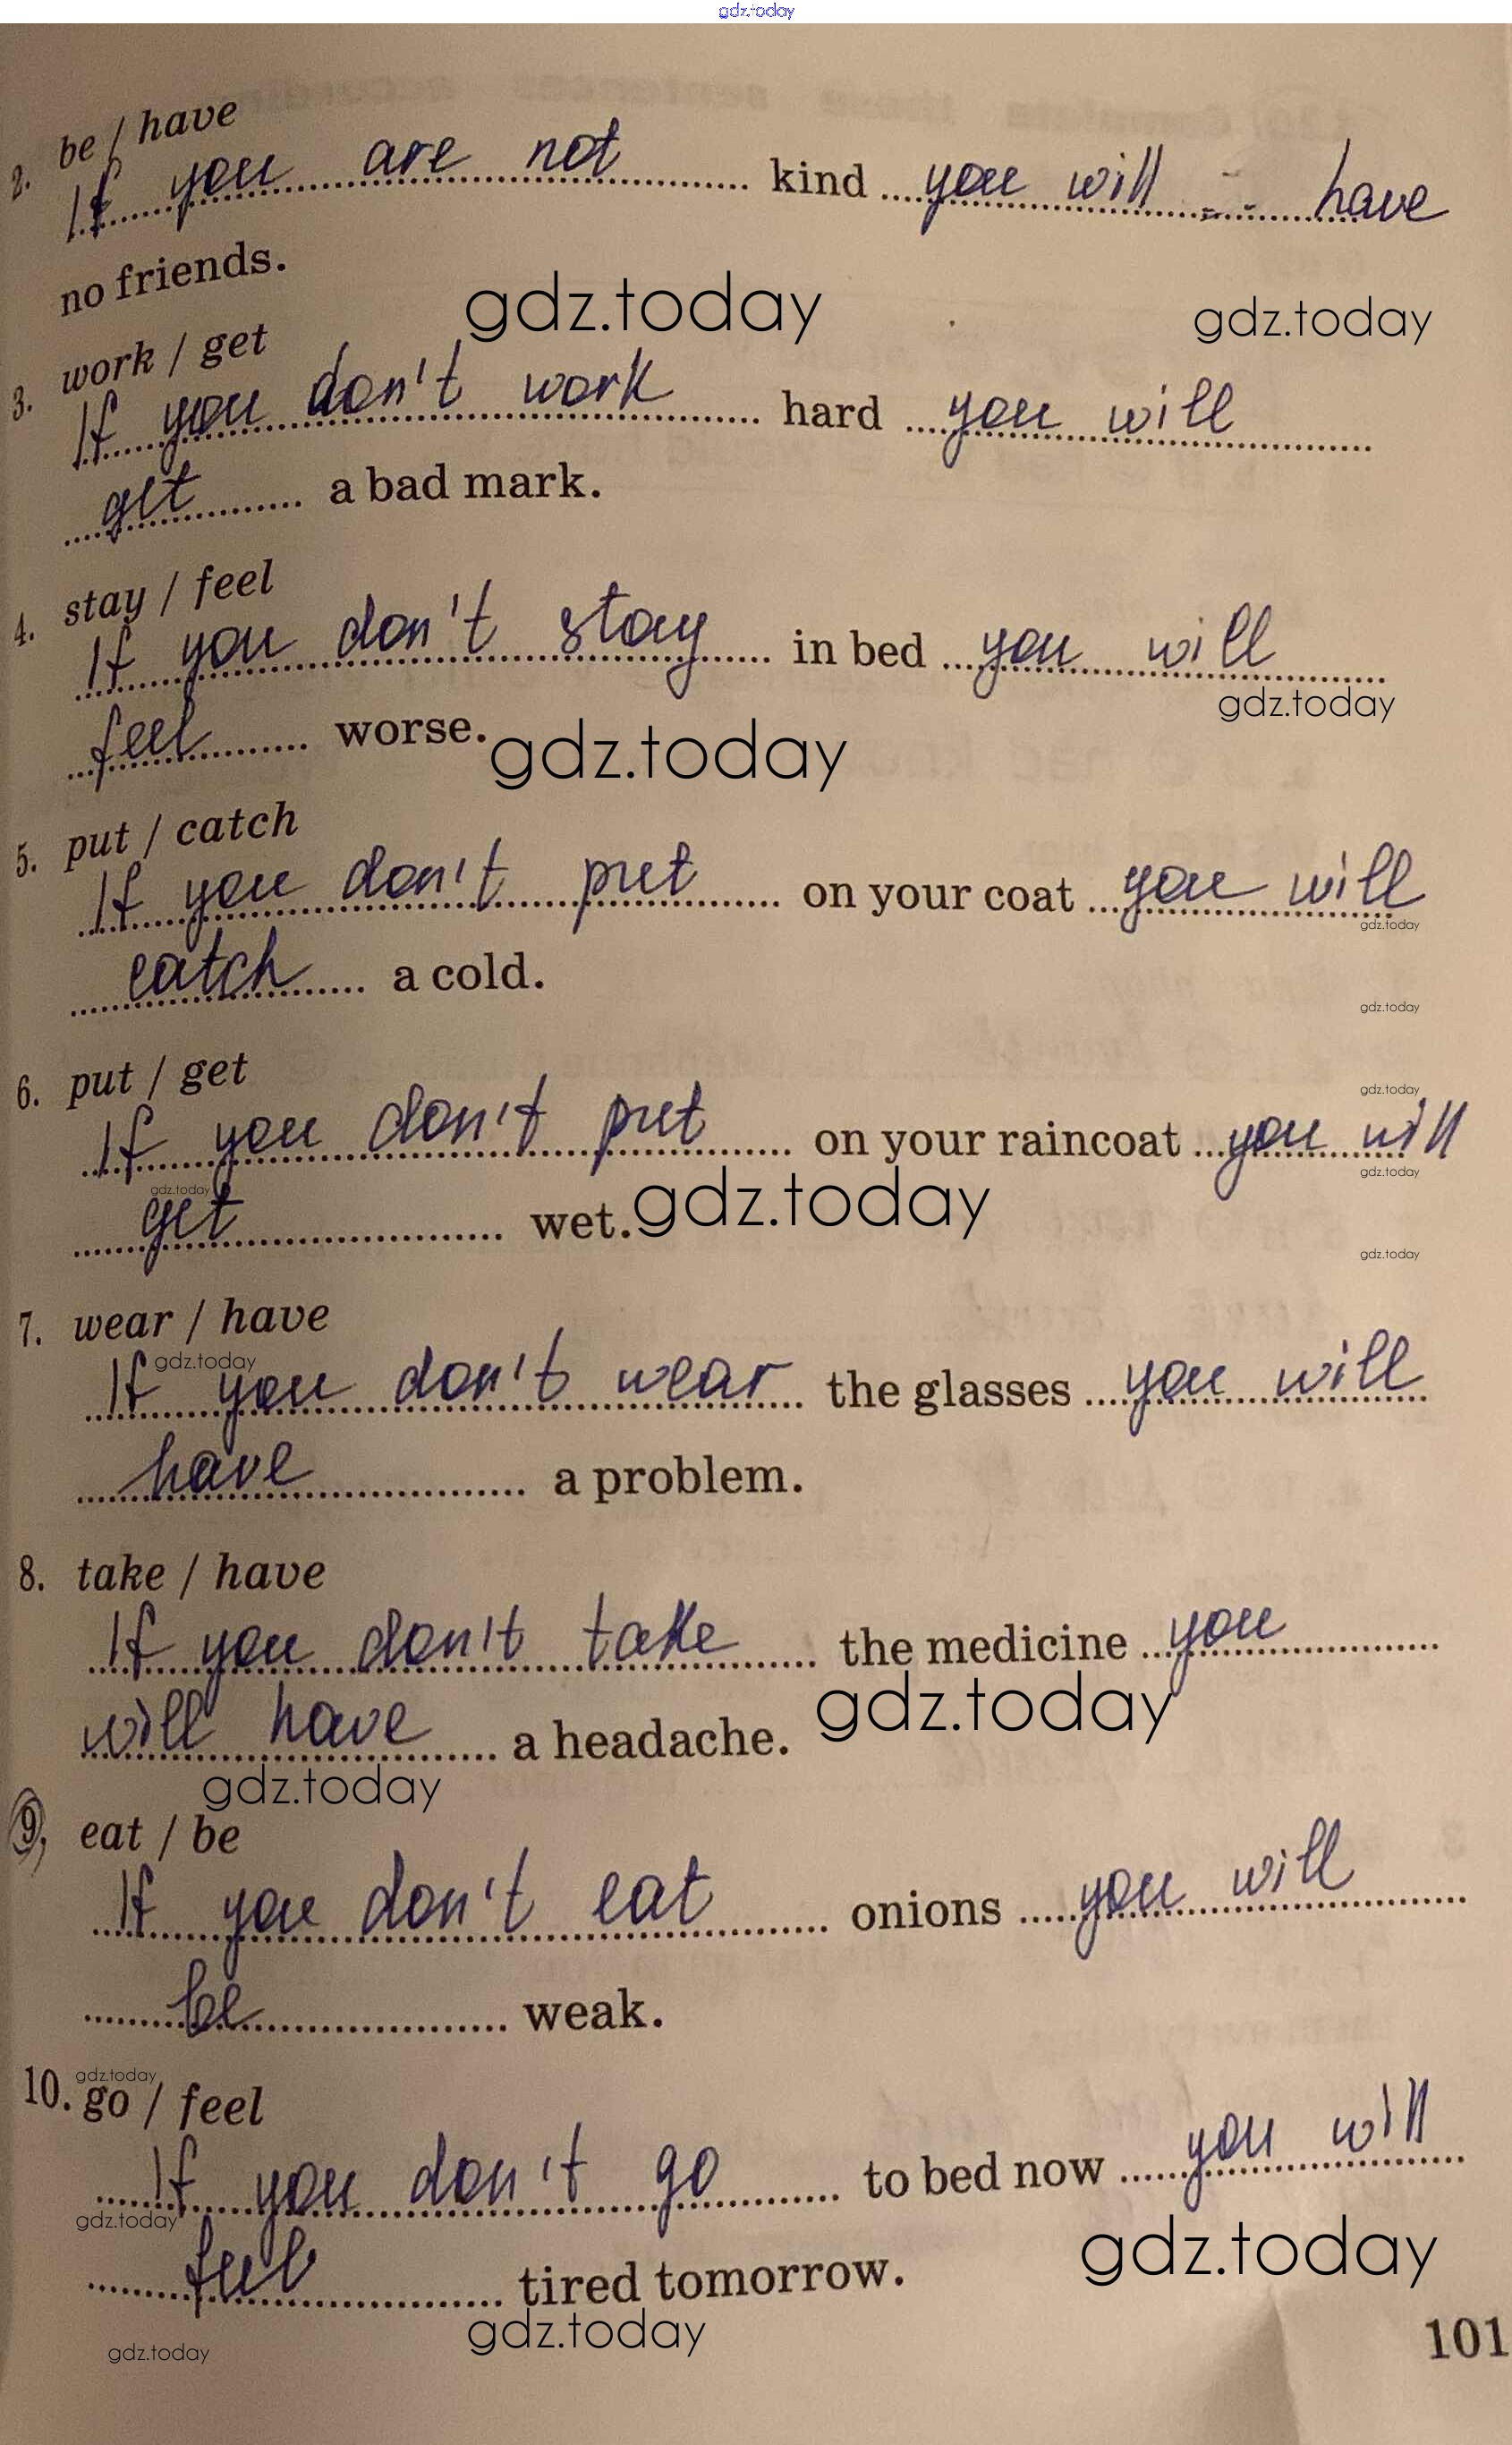 gdz.today
2. be / have
If you are not kind you will have
no friends.
gdz.today gdz.today
3. work / get
If you don't work hard you will
get a bad mark.
4. stay / feel
If you don't stay in bed you will
gdz.today
feel worse. gdz.today
5. put / catch
If you don't put on your coat you will
gdz.today
catch a cold.
gdz.today
6. put / get
gdz.today
If you don't put on your raincoat you will
gdz.today gdz.today
get wet. gdz.today
gdz.today
7. wear / have
gdz.today
If you don't wear the glasses you will
have a problem.
8. take / have
If you don't take the medicine you
will have a headache. gdz.today
gdz.today
9. eat / be
If you don't eat onions you will
be weak.
gdz.today
10. go / feel
If you don't go to bed now you will
gdz.today gdz.today
feel tired tomorrow.
gdz.today
101
gdz.today